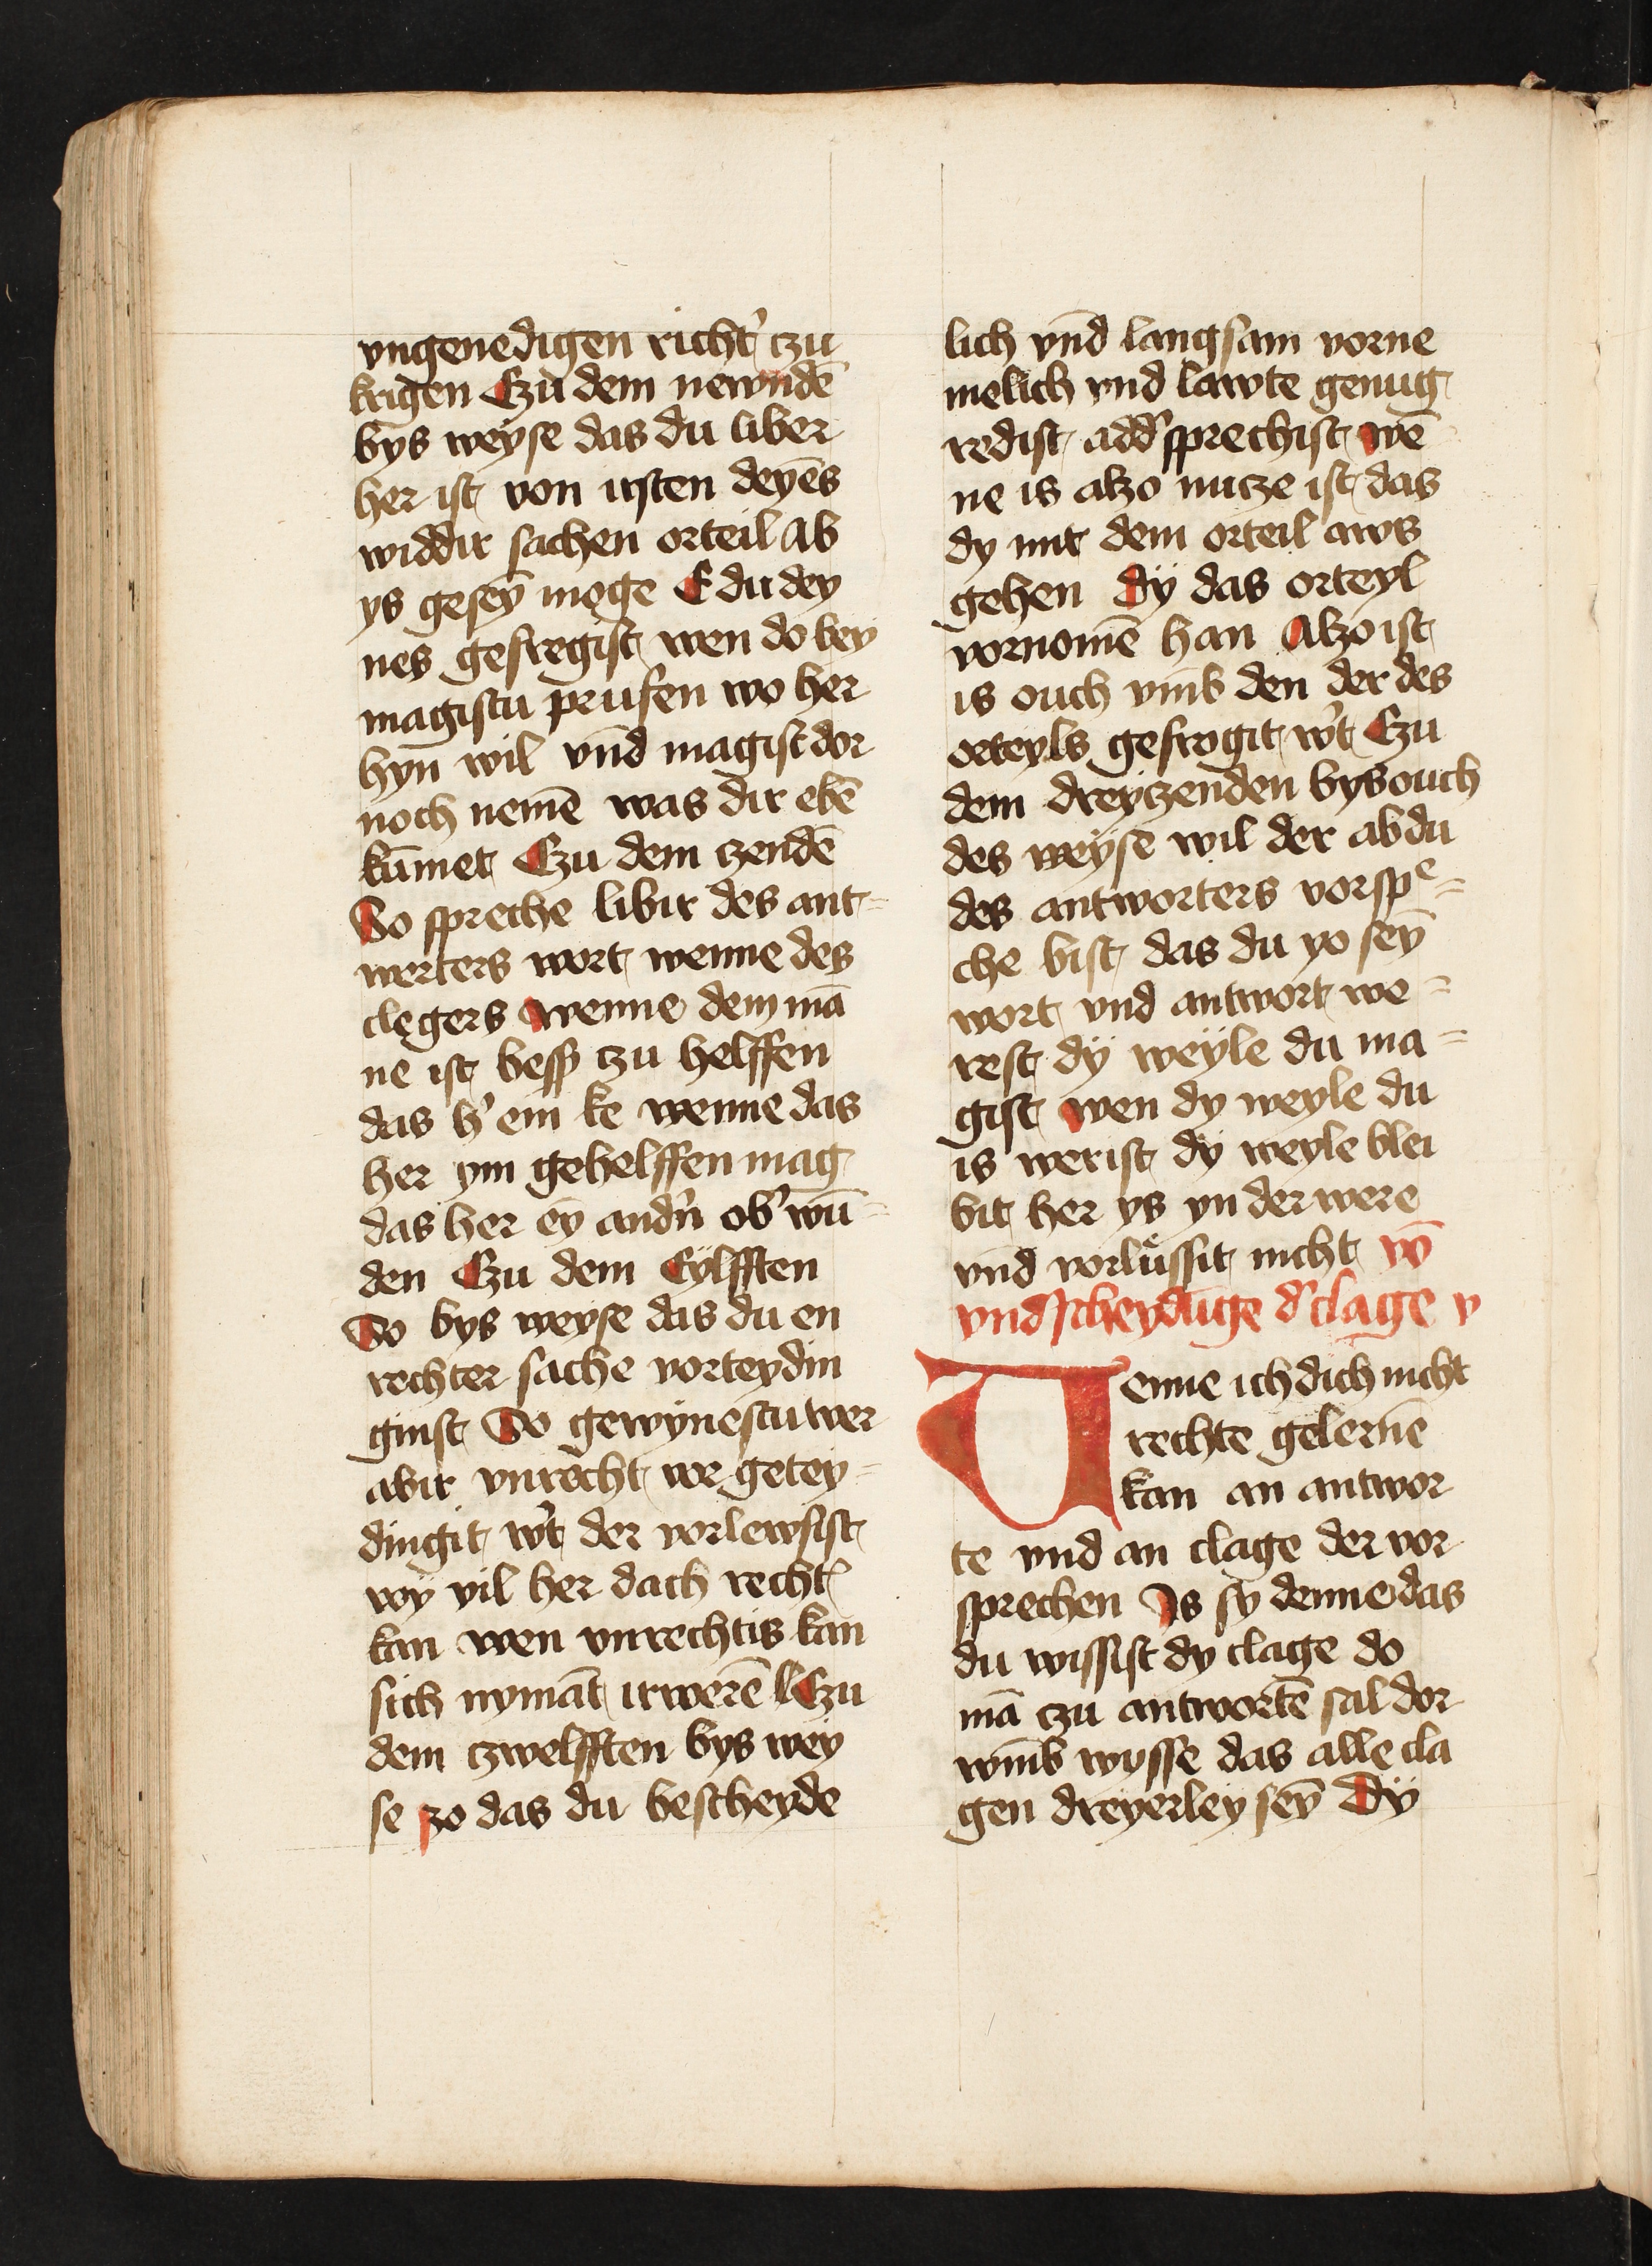 vngenedigen richt' czu
krigen Czu dem newndē
bys weyse das du liber
her ist von irsten deyēs
widdir sachen orteil Ab
ys gesey̅ moge E du dey
nes gefregist wen do bey
magistu prufen wo her
hyn wil vnd̄ magist dor
noch nemē was dir ebē
kūmet Czu dem czendē
So spreche libir des ant=
werters wort wenne des
clegers wenne dem mā
ne ist bess' czu helffen
das h' em ke wenne das
her ym gehelffen mag
das her ey̅ and'n ob' wū=
den Czu dem Eylfften
So bys weyse das du en
rechter sache vorteydin
ginst So gewynestu wer
abir vnrecht vor getey=
dingit w't der vorlewsist
wy vil her dach recht'
kan wen vnrechtis kan
sich nymāt irwerē Czu
dem czwelfften bys wey
se zo das du bescheyde
lich vnd̄ langsam vorne
melich vnd lawte genug
redist add' sprechist wē
ne is alzo nucze ist das
dy mit dem orteil aws
gehen dy das orteyl
vornomē han Alzo ist
is ouch vmb den der des
orteyls gefrogit w't Czu
dem dreyczenden bys ouch
des weyse wil der ab du
des antworters vorspᵉ=
che bist das du yo sey̅
wort vnd antwort we=
rest dy weyle du ma=
gist wen dy weyle du
is werist dy weyle blei
bit her ys yn der were
vnd vorluͤssit nicht vō
vndscheydūge d' clage v
Wenne ich dich nicht
rechte gelernē
kan an antwor
te vnd an clage der vor
sprechen Is sy denne das
du wissist dy clage do
mā czu antwortē sal dor
wmb wysse das alle cla
gen dreyerley sey̅ Dy